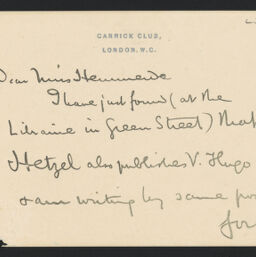 GARRICK CLUB,
LONDON, W.C.
Dear Miss Hemmerde
I have just found (at the
Librairie in Green Street) that
Hetzel also publishes V. Hugo
& am writing by same pos
for